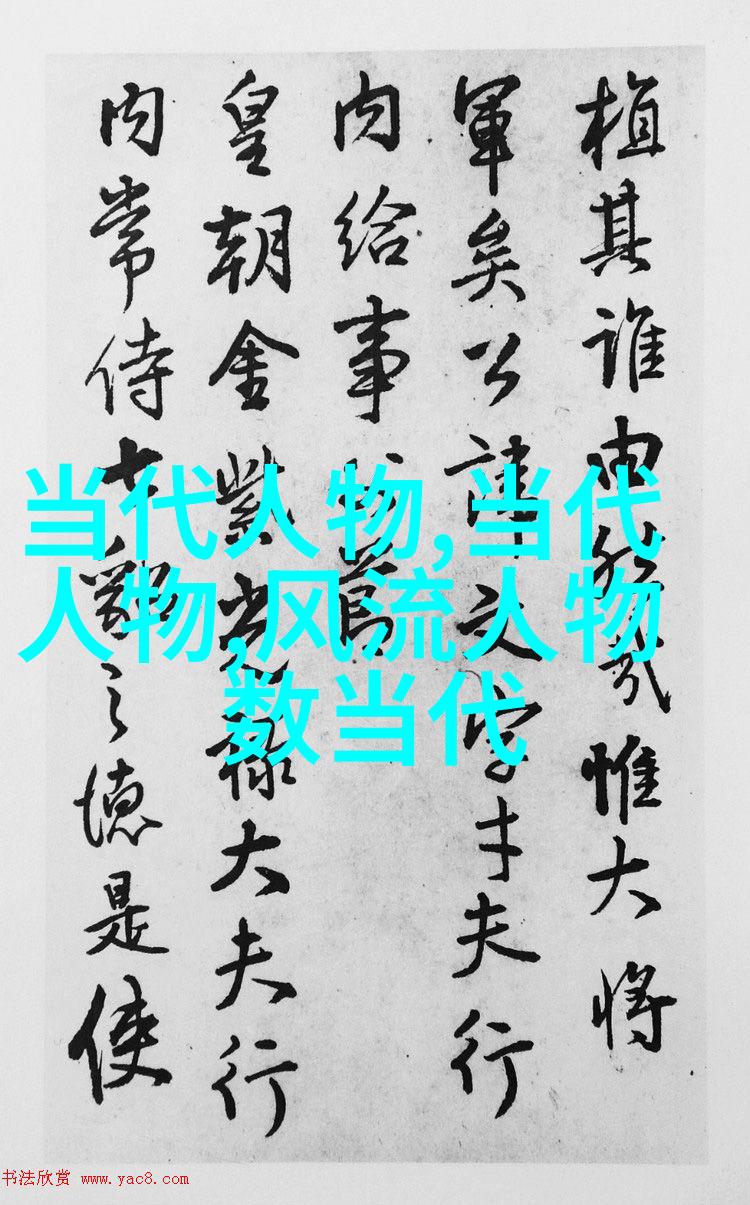 植其誰 惟大將
軍矣公諱文字才夫行
内給事
皇朝金紫光祿大夫行
内常侍 之德是使
当代人物,当代
人物,风流人物
数当代
书法欣赏 www.yac8.com